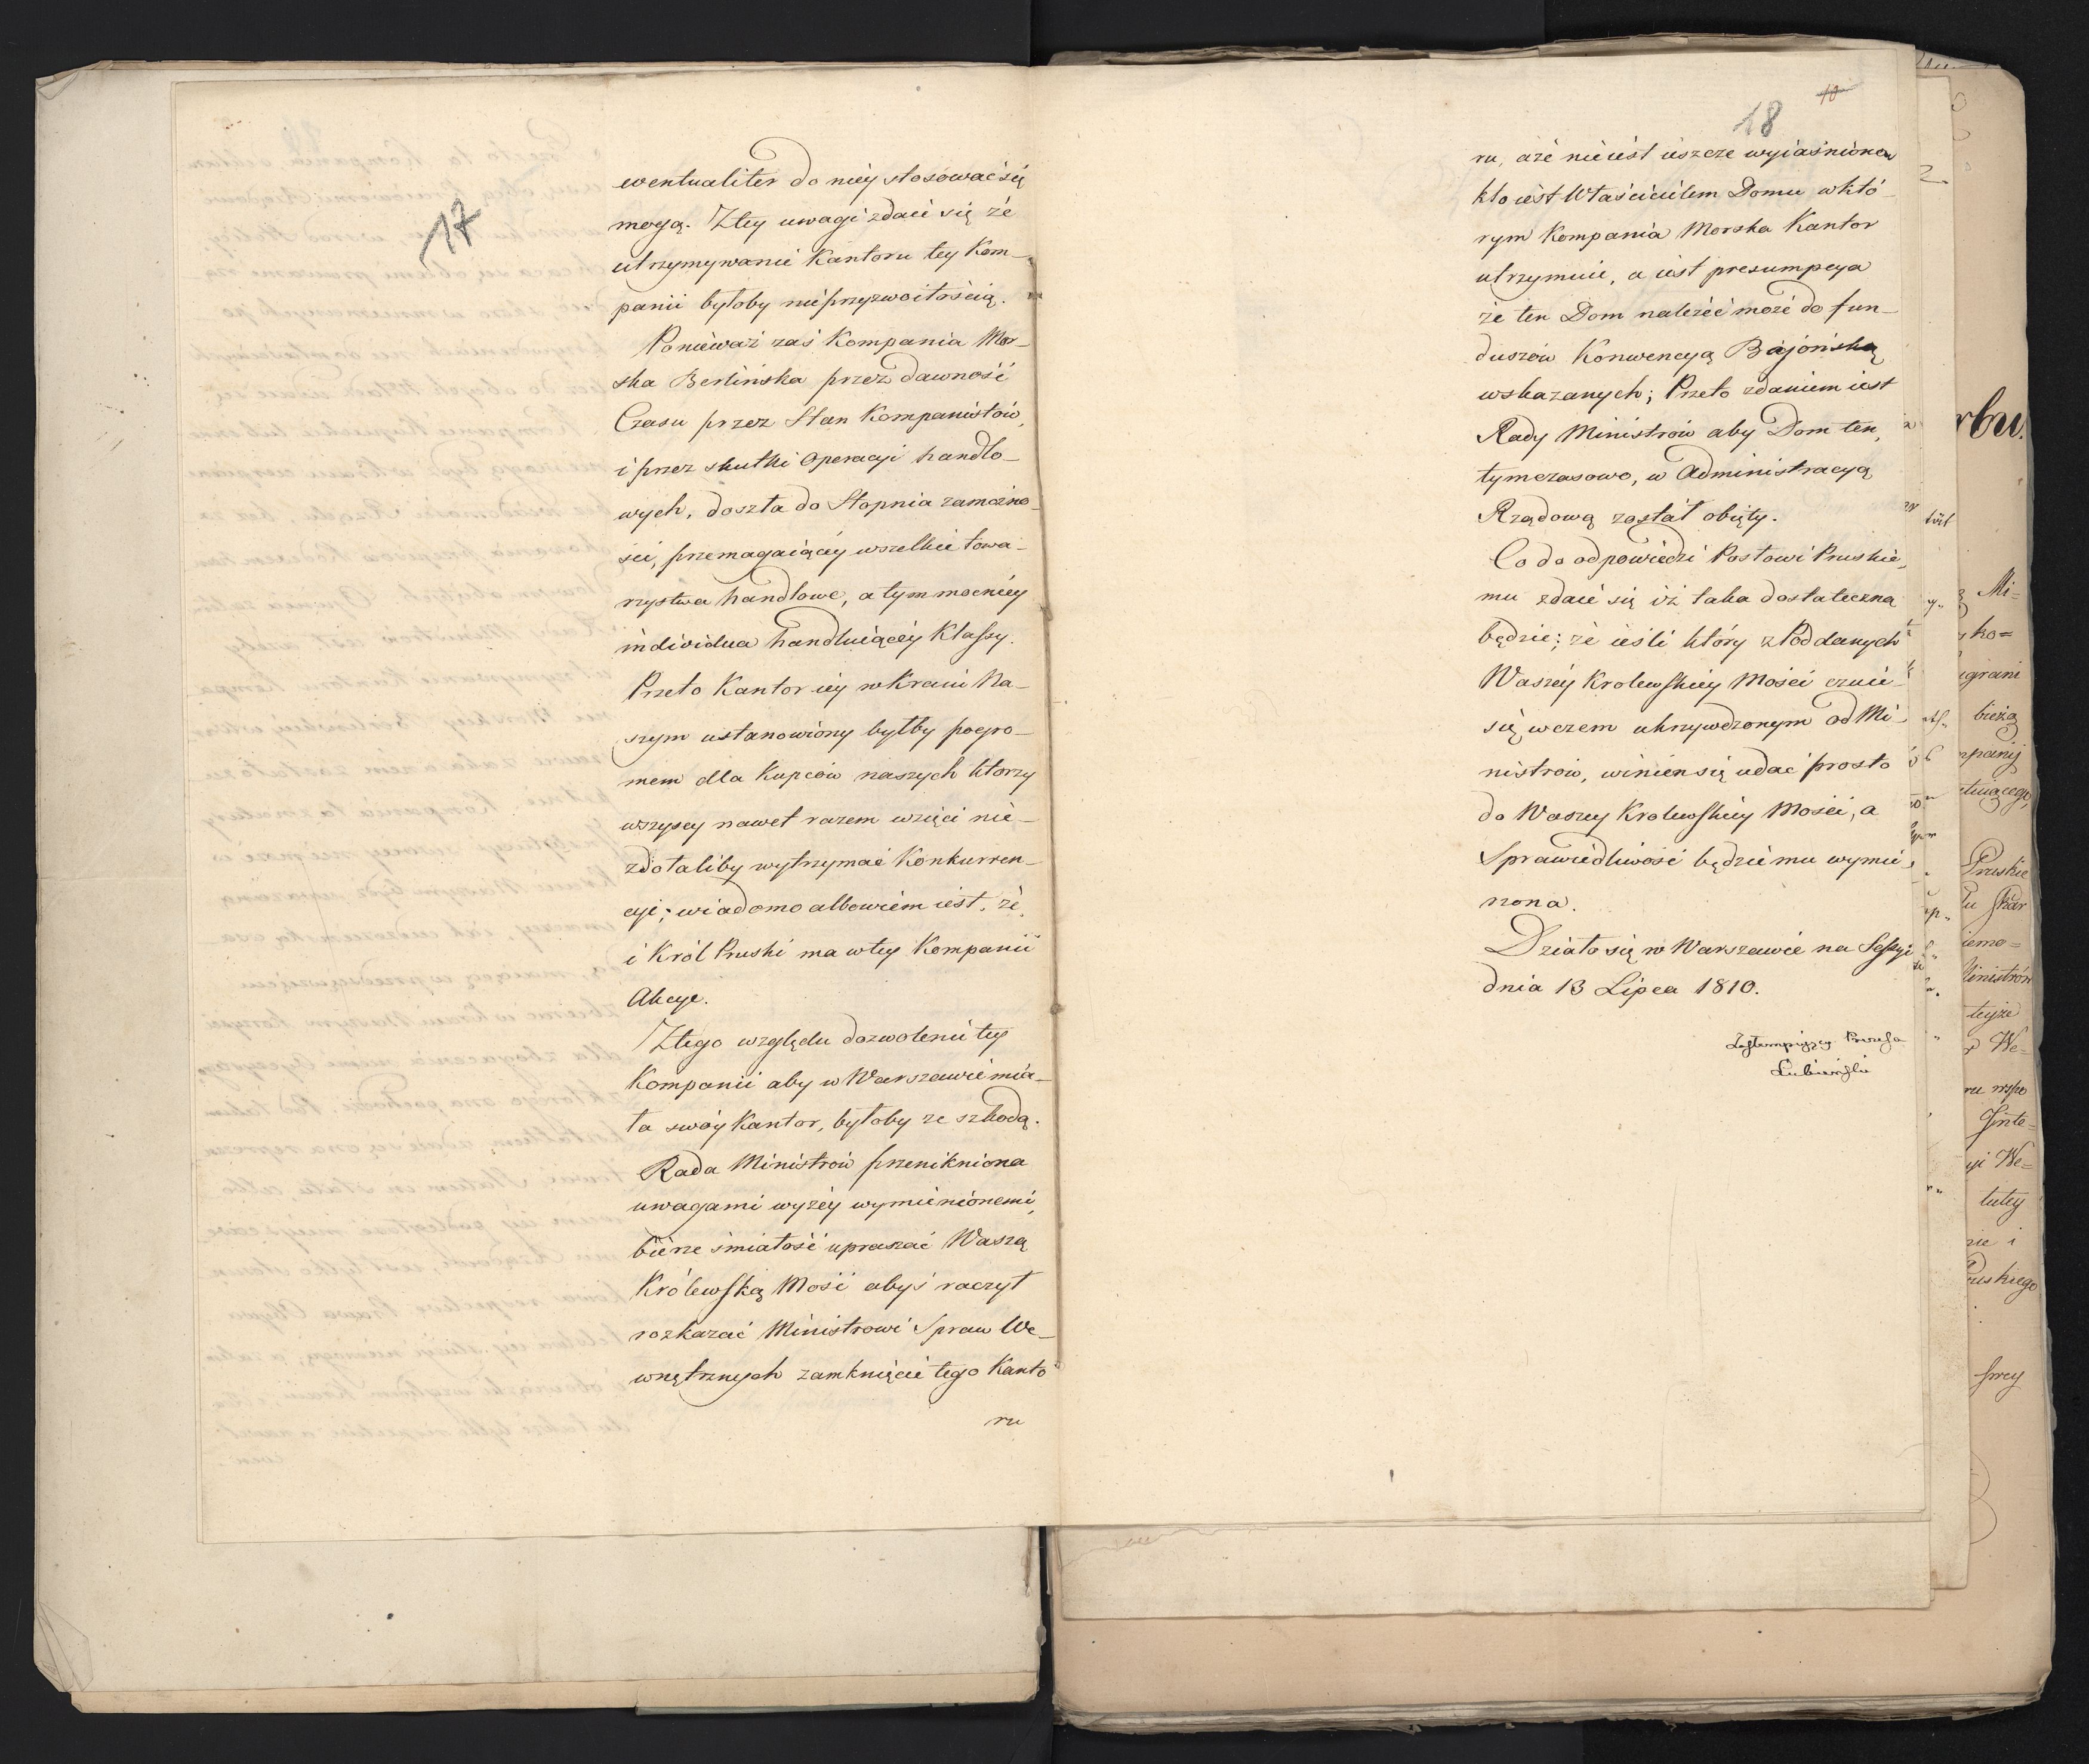 17
ewentualiter do niéy stosować się
mogą. Ztey uwagi zdaie się że
utrzymywanie Kantoru tey Kom-
panii byłoby nieprzyzwoitością.
Ponieważ zaś Kompania Mor-
ska Berlińska przez dawność
Czasu przez Stan Kompanistów,
i przez skutki Operacyi handlo-
wych, doszła do Stopnia zamożno-
ści, przemagaiącéy wszelkie towa-
rzystwa handlowe, a tym mocniéy
individua handluiącéy Klassy.
Przeto Kantor iéy w Kraiu Na-
szym ustanowiony byłby pogro-
mem dla Kupców naszych ktorzy
wszyscy nawet razem wzięci nie-
zdołaliby wytrzymać Konkurren-
cyi; wiadomo albowiem iest, że,
i Król Pruski ma w tey Kompanii
Akcye.
Ztego względu dozwolenie tey
Kompanii aby w Warszawie mia-
ła swóy Kantor, byłoby ze szkodą.
Rada Ministrów przenikniona
uwagami wyżéy wymienionemi,
bierze śmiałość upraszać Waszą
Królewską Mość abyś raczył
rozkazać Ministrowi Spraw We-
wnętrznych zamknięcie tego Kanto
ru
10
18
ru, aże nieiest ieszcze wyiaśnionem
kto iest Właścicielem Domu w któ-
rym Kompania Morska Kantor
utrzymuie, a iest presumpcya
że ten Dom należéć może do fun-
duszów Konwencyą Bajońską
wskazanych; Przeto zdaniem iest
Rady Ministrów aby Dom ten,
tymczasowo, w Administracyą
Rządową został obięty.
Co do odpowiedzi Posłowi Pruskie-
mu zdaie się iż taka dostateczną
będzie; że ieśli który z Poddanych
Waszéy Krolewskiéy Mości czuie
się wczem ukrzywdzonym od Mi-
nistrów, winien się udać prosto
do Waszey Krolewskiéy Mości, a
Sprawiedliwość będzie mu wymie-
rzona.
Działo się w Warszawie na Sessyi
dnia 13 Lipca 1810.
Zastempuiący Prezesa
Lubieński